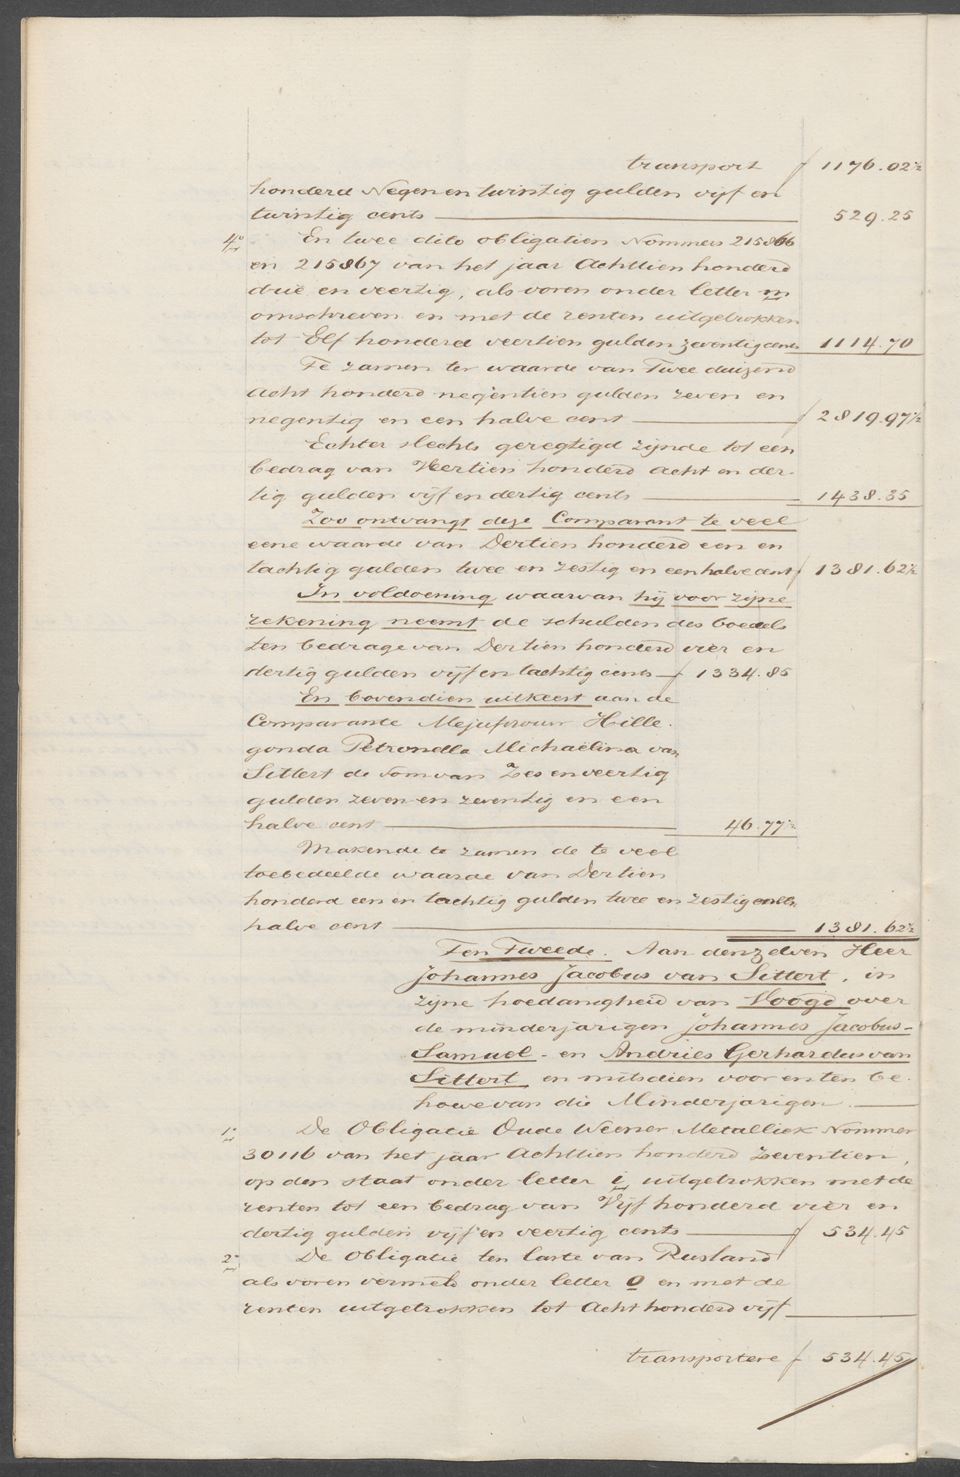 transport f 1176.02½
honderd Negen en twintig gulden vijf en
twintig cents 529.25
4o En twee dito obligatien Nommers 215866
en 215867 van het jaar Achttien honderd
drie en veertig, als voren onder letter m
omschreven en met de renten uitgetrokken
tot Elf honderd veertien gulden zeventig cents 1114.70
Te zamen ter waarde van Twee duizend
Acht honderd negentien gulden zeven en
negentig en een halve cent f 2819.97½
Echter slechts geregtigd zijnde tot een
bedrag van Veertien honderd Acht en der-
tig gulden vijf en dertig cents 1438.35
Zoo ontvangt deze Comparant te veel
eene waarde van Dertien honderd een en
tachtig gulden twee en zestig en een halve cent f 1381.62½
In voldoening waarvan hij voor zijne
rekening neemt de schulden des boedels
ten bedrage van Dertien honderd vier en
dertig gulden vijf en tachtig cents f 1334.85
En bovendien uitkeert aan de
Comparante Mejufvrouw Hille-
gonda Petronella Michaëlina van
Sittert de som van Zes en veertig
gulden zeven en zeventig en een
halve cent 46.77½
Makende te zamen de te veel
toebedeelde waarde van Dertien
honderd een en tachtig gulden twee en zestig en een
halve cent 1381.62½
Ten Tweede. Aan denzelven Heer
Johannes Jacobus van Sittert, in
zijne hoedanigheid van Voogd over
de minderjarigen Johannes Jacobus-
Samuel- en Andries Gerhardus van
Sittert en mitsdien voor en ten be-
hoeve van die Minderjarigen.
1o De Obligatie Oude Weener Metalliek Nommer
30116 van het jaar Achttien honderd Zeventien,
op den staat onder letter i, uitgetrokken met de
renten tot een bedrag van Vijf honderd vier en
dertig gulden vijf en veertig cents f 534.45
2o De Obligatie ten laste van Rusland
als voren vermeld onder letter O en met de
renten uitgetrokken tot Acht honderd vijf
transportere f 534.45